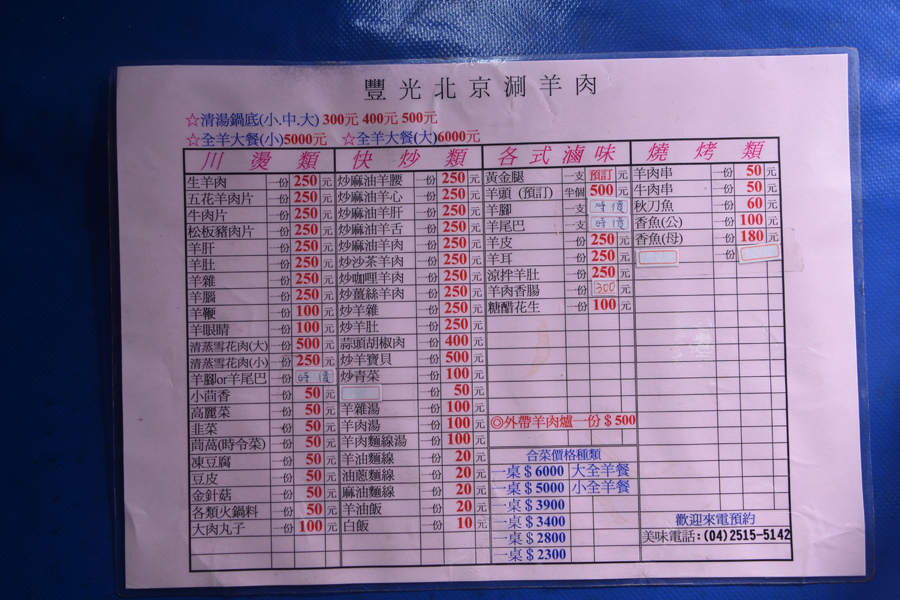 豐光北京涮羊肉
☆清湯鍋底(小.中.大) 300元 400元 500元
☆全羊大餐(小)5000元 ☆全羊大餐(大)6000元
川燙類
生羊肉 一份 250 元
五花羊肉片 一份 250 元
牛肉片 一份 250 元
松板豬肉片 一份 250 元
羊肝 一份 250 元
羊肚 一份 250 元
羊雜 一份 250 元
羊腦 一份 250 元
羊鞭 一份 100 元
羊眼睛 一份 100 元
清蒸雪花肉(大) 一份 500 元
清蒸雪花肉(小) 一份 250 元
羊腳or羊尾巴 一份 時價 元
小茴香 一份 50 元
高麗菜 一份 50 元
韭菜 一份 50 元
茼萵(時令菜) 一份 50 元
凍豆腐 一份 50 元
豆皮 一份 50 元
金針菇 一份 50 元
各類火鍋料 一份 50 元
大肉丸子 一份 100 元
快炒類
炒麻油羊腰 一份 250 元
炒麻油羊心 一份 250 元
炒麻油羊肝 一份 250 元
炒麻油羊舌 一份 250 元
炒麻油羊肉 一份 250 元
炒沙茶羊肉 一份 250 元
炒咖哩羊肉 一份 250 元
炒薑絲羊肉 一份 250 元
炒羊雜 一份 250 元
炒羊肚 一份 250 元
蒜頭胡椒肉 一份 400 元
炒羊寶貝 一份 500 元
炒青菜 一份 100 元
一份 50 元
羊雜湯 一份 100 元
羊肉湯 一份 100 元
羊肉麵線湯 一份 100 元
羊油麵線 一份 20 元
油蔥麵線 一份 20 元
麻油麵線 一份 20 元
羊油飯 一份 20 元
白飯 一份 10 元
各式滷味
黃金腿 一支 預訂 元
羊頭（預訂） 半個 500 元
羊腳 一支 時價 元
羊尾巴 一支 時價 元
羊皮 一份 250 元
羊耳 一份 250 元
涼拌羊肚 一份 250 元
羊肉香腸 一份 300 元
糖醋花生 一份 100 元
◎外帶羊肉爐一份＄500
合菜價格種類
一桌＄6000 大全羊餐
一桌＄5000 小全羊餐
一桌＄3900
一桌＄3400
一桌＄2800
一桌＄2300
燒烤類
羊肉串 一份 50 元
牛肉串 一份 50 元
秋刀魚 一份 60 元
香魚(公) 一份 100 元
香魚(母) 一份 180 元
一份 元
歡迎來電預約
美味電話:(04)2515-5142